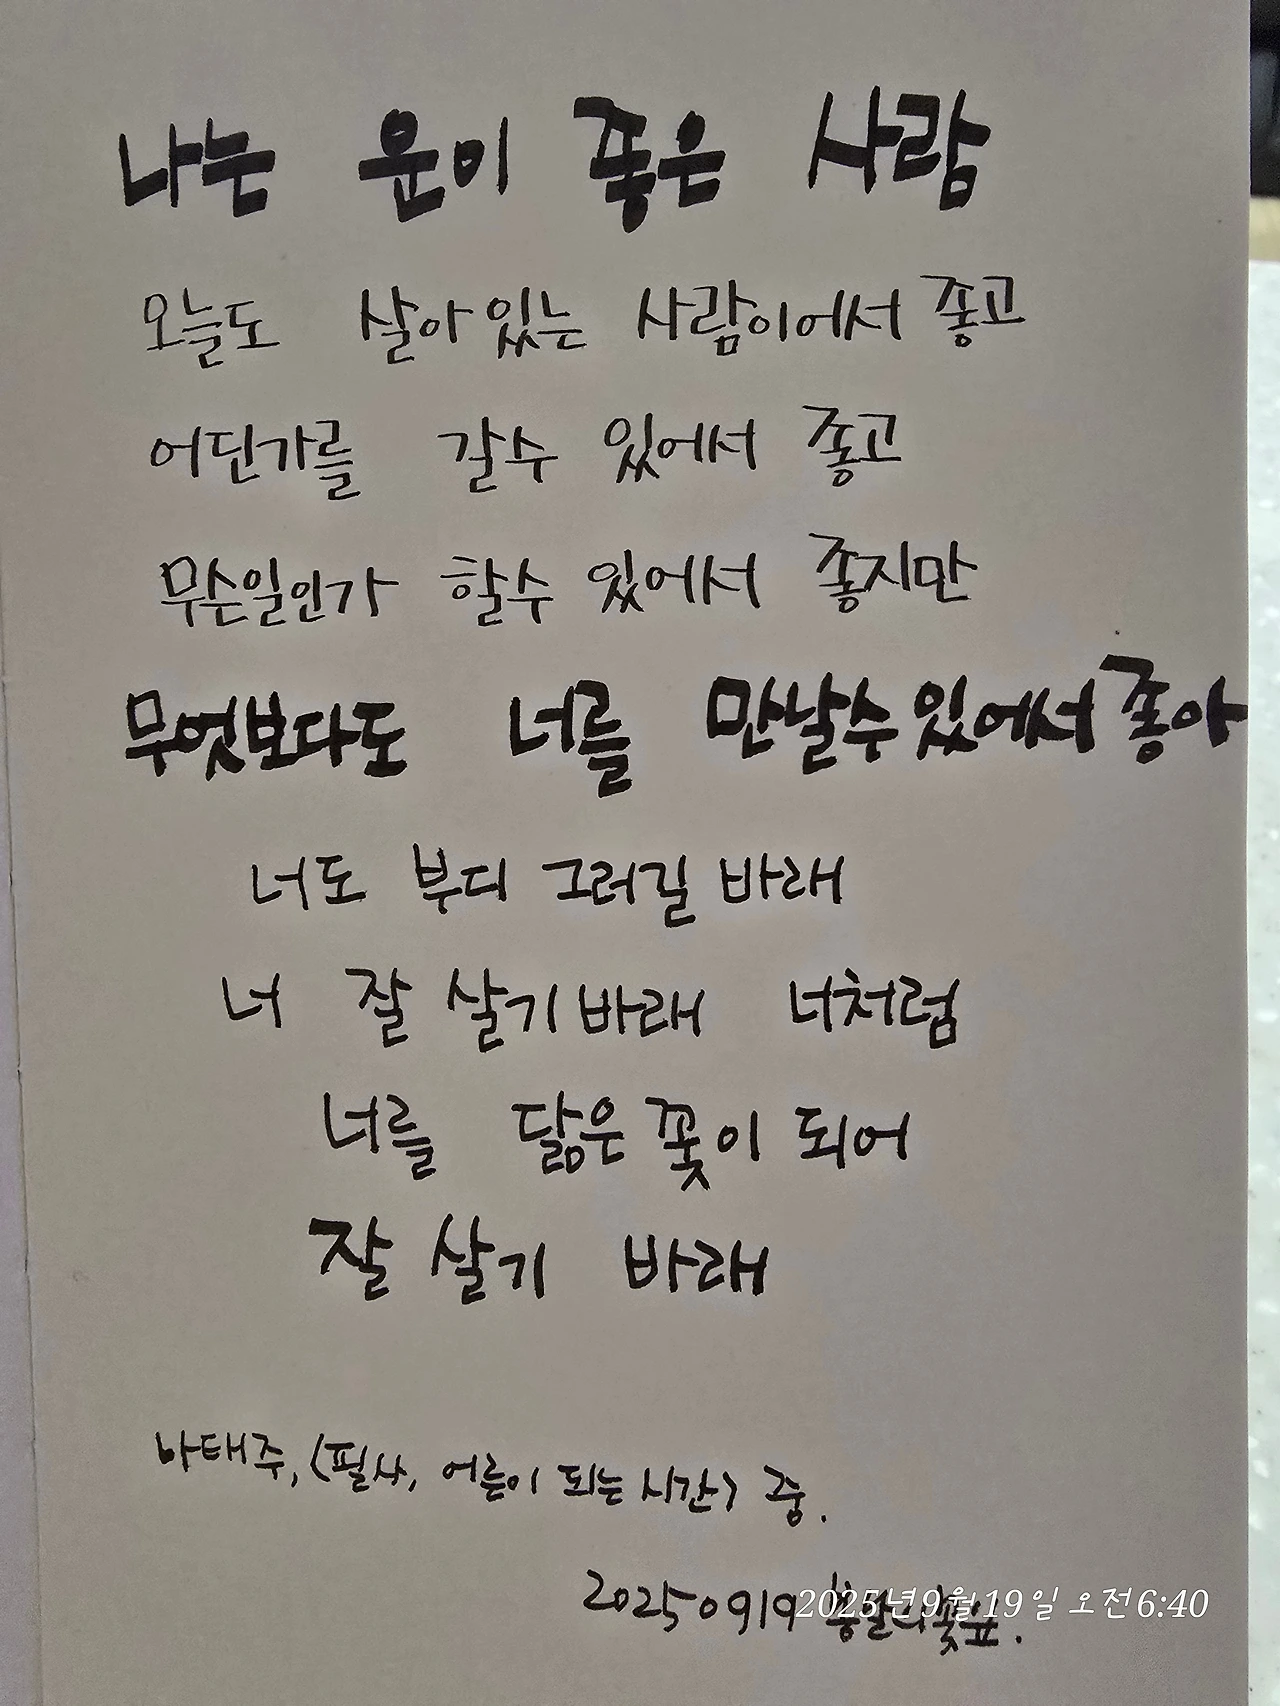 나는 운이 좋은 사람
오늘도 살아있는 사람이어서 좋고
어딘가를 갈수 있어서 좋고
무슨일인가 할수 있어서 좋지만
무엇보다도 너를 만날수있어서좋아
너도 부디 그러길 바래
너 잘 살기바래 너처럼
너를 닮은 꽃이 되어
잘 살기 바래
나태주, <필사, 어른이 되는 시간> 중.
20250919
2025년9월19일 오전6:40